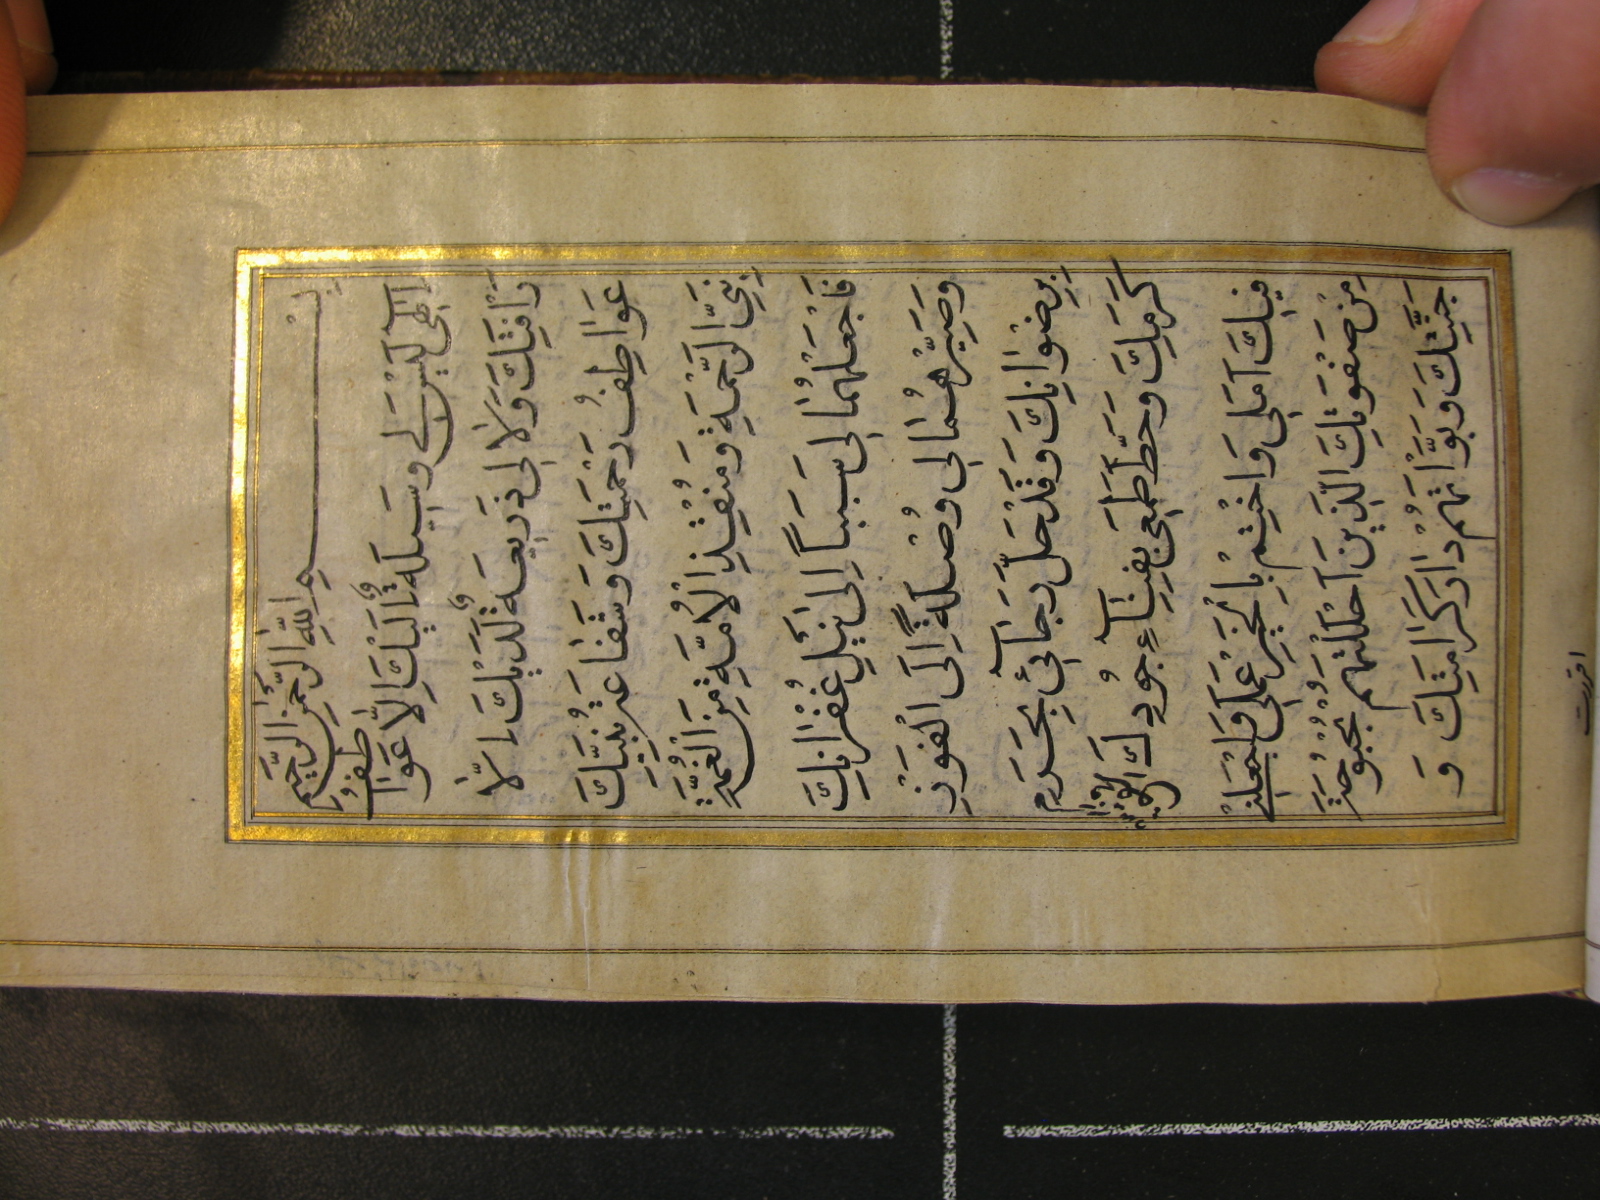 بِسْمِ اللّٰهِ الرَّحْمٰنِ الرَّحِيْمِ
اِلٰهِىْ لَيْسَ لِىْ وَسِيْلَةٌ اِلَيْكَ اِلَّا عَوَاطِفُ
رَاْفَتِكَ وَلَا لِىْ ذَرِيْعَةٌ لَدَيْكَ اِلَّا
عَوَاطِفُ رَحْمَتِكَ وَشَفَاعَةُ نَبِيِّكَ
نَبِىِّ الرَّحْمَةِ وَمُنْقِذِ الْاُمَّةِ مِنَ الْغُمَّةِ
فَاجْعَلْهُمَا لِىْ سَبَبًا اِلٰى نَيْلِ غُفْرَانِكَ
وَصَيِّرْهُمَا لِىْ وُصْلَةً اِلَى الْفَوْزِ
بِرِضْوَانِكَ وَقَدْ حَلَّ رَجَآئِىْ بِحَرَمِ
كَرَمِكَ وَحَطَّ طَمَعِىْ بِفِنَآءِ جُوْدِكَ
فِيْكَ اَمَلِىْ وَاخْتِمْ بِالْخَيْرِ عَمَلِىْ وَاجْعَلْنِىْ
مِنْ صَفْوَتِكَ الَّذِيْنَ اَحْلَلْتَهُمْ بُحْبُوْحَةَ
جَنَّتِكَ وَبَوَّاْتَهُمْ دَارَ كَرَامَتِكَ وَ
اقررت